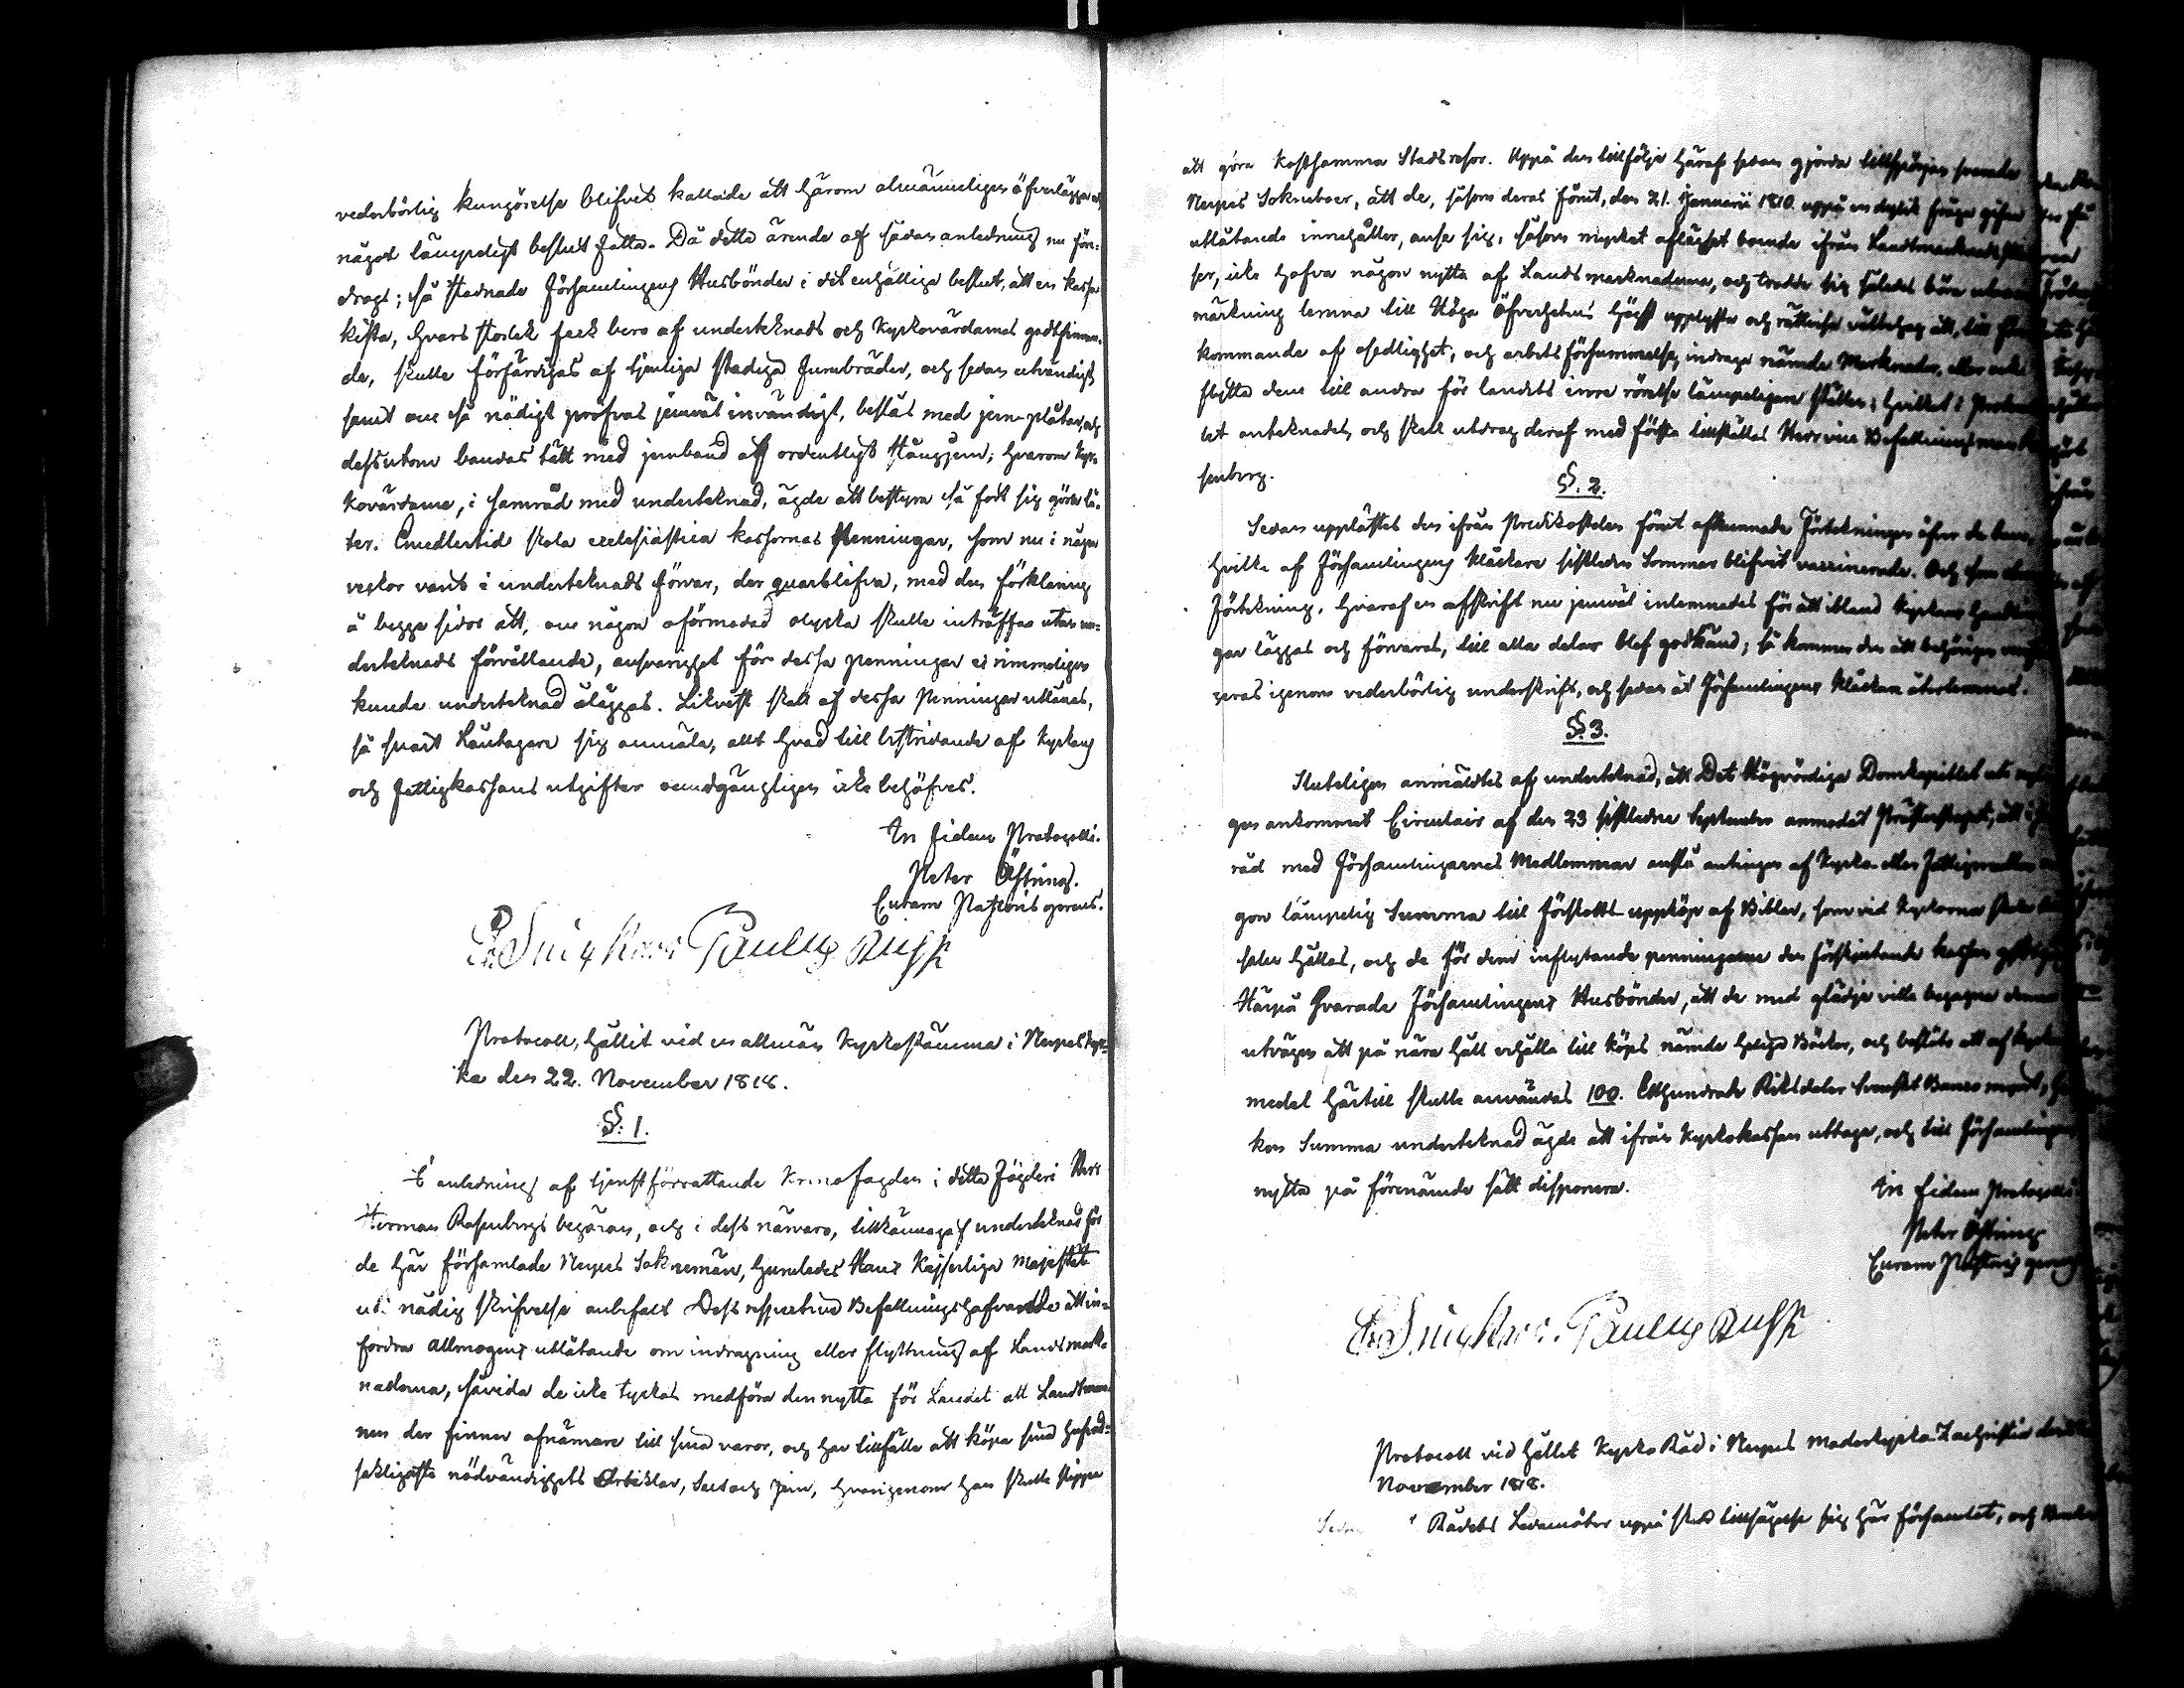 vederbörlig kungörelse blifvit kallade att härom almänneligen öfverlägga och
något lämpeligt beslut fatta. Då detta ärende af sådan anledning nu före-
drogs; så stadnade Församlingens Husbönder i det enhälliga beslut, att en kassa
kista, hvars storlek feck bero af undertecknads och Kyrkovärdarnes godtfinnan-
de, skulle förfärdigas af tjenliga stadiga furubräder, och sedan utvändigt
samt om så nödigt pröfvas jemväl invändigt, beslås med jern-plåtar, och
dessutom bandas tätt med jernband af ordentligt stångjern; hvarom Kyr-
kovärdarne, i samråd med undertecknad, ägde att bestyra så fort sig göra lå-
ter. Emedlertid skola ecclesiastica kassornas Penningar, som nu i några
veckor varit i undertecknads förvar, der quarblifva, med den förklaring
å begge sidor att, om någon oförmodad olycka skulle inträffa utan un-
dertecknads förvållande, ansvarighet för dessa penningar ej rimmeligen
kunde undertecknad åläggas. Likväl skall af dessa Penningar utlånas,
så snart Låntagare sig anmäla, allt hvad till bestridande af Kyrkans
och fattigkassans utgifter oundgängligen icke behöfves.
In fidem Protocolli.
Peter Östring.
Curam Pastoris gerens.
Protocoll, hållit vid en allmän Kyrkostämma i Nerpes Kyr-
ka den 22. November 1818.
§. 1.
I anledning af tjenstförrättande Kronofogden i detta Fögderi Herr
Herman Rosenbergs begäran, och i dess närvaro, tillkännagaf undertecknad för
de här församlade Nerpes Soknemän, huruledes Hans Kejserliga Majestät
uti nådig skrifvelse anbefalt Dess respective Befallningshafvande att in-
fordra Allmogens utlåtande om indragning eller flyttning af Landsmark-
naderna, såvida de icke tyckas medföra den nytta för Landet att Landtman-
nen der finner afnämare till sina varor, och har tillfälle att köpa sina hufvud-
sakligaste nödvändighets Artiklar, Salt och Jern, hvarigenom han skulle slippa
att göra kostsamma Stadsresor. Uppå den tillfölje häraf sedan gjorda tillfrågan svarade
Nerpes Sokneboer, att de, såsom deras förut, den 21. Januarii 1810. uppå en dylik fråga gifna
utlåtande innehåller, anse sig, såsom mycket aflägset boende ifrån Landtmarknads
ser, icke hafva någon nytta af Landsmarknaderna, och trodde sig således böra
märkning lemna till Höga Öfverhetens högst upplyste och rättvisa välbehag att, till
kommande af osedlighet, och arbetsförsummelse, indraga nämnde Marknader, eller ock
flytta dem till andra för landets inre rörelse lämpeligare ställen; hvilket i
let antecknades, och skall utdrag deraf med första tillställas Herr vice Befallningsman
senberg.
§. 2.
Sedan upplästes den ifrån Predikostolen förut afkunnade Förteckningen öfver de barn,
hvilka af Församlingens Klåckare sistleden Sommar blifvit vaccinerade. Och som
Förteckning, hvaraf en afskrift nu jemväl inlemnades för att ibland Kyrkans
gar läggas och förvaras, till alla delar blef godkänd; så kommer den att behörigen
ceras igenom vederbörlig underskrift, och sedan åt Församlingens Klåckare återlemnas.
§. 3.
Sluteligen anmäldtes af undertecknad, att Det Högvördiga Domkapitlet uti
gen ankommet Circulair af den 23 sistledne September anmodat Presterskapet, att i
råd med Församlingarnes Medlemmar anslå antingen af Kyrko- eller Fattigmedlen
gon lämpelig Summa till förskotts uppköp af Biblar, som vid Kyrkorna skola
salu hållas, och de för dem inflytande penningarne den förskjutande kassan
Härpå svarade Församlingens Husbönder, att de med glädje ville begagna denna
utvägen att på nära håll erhålla till köps nämde heliga Böcker, och beslöto att af
medel härtill skulle användas 100. Etthundrade Riksdaler Svenskt Banco mynt,
ken Summa undertecknad ägde att ifrån Kyrkokassan uttaga, och till Församlingens
nytta på förenämde sätt disponera.
In fidem Protocolli
Peter Östring
Curam Pastoris gerens
Protocoll vid hållet Kyrko Råd i Nerpes Moderkyrkas Sacristia
November 1818.
Rådets Ledamöter uppå skedd tillsägelse sig här församlat, och